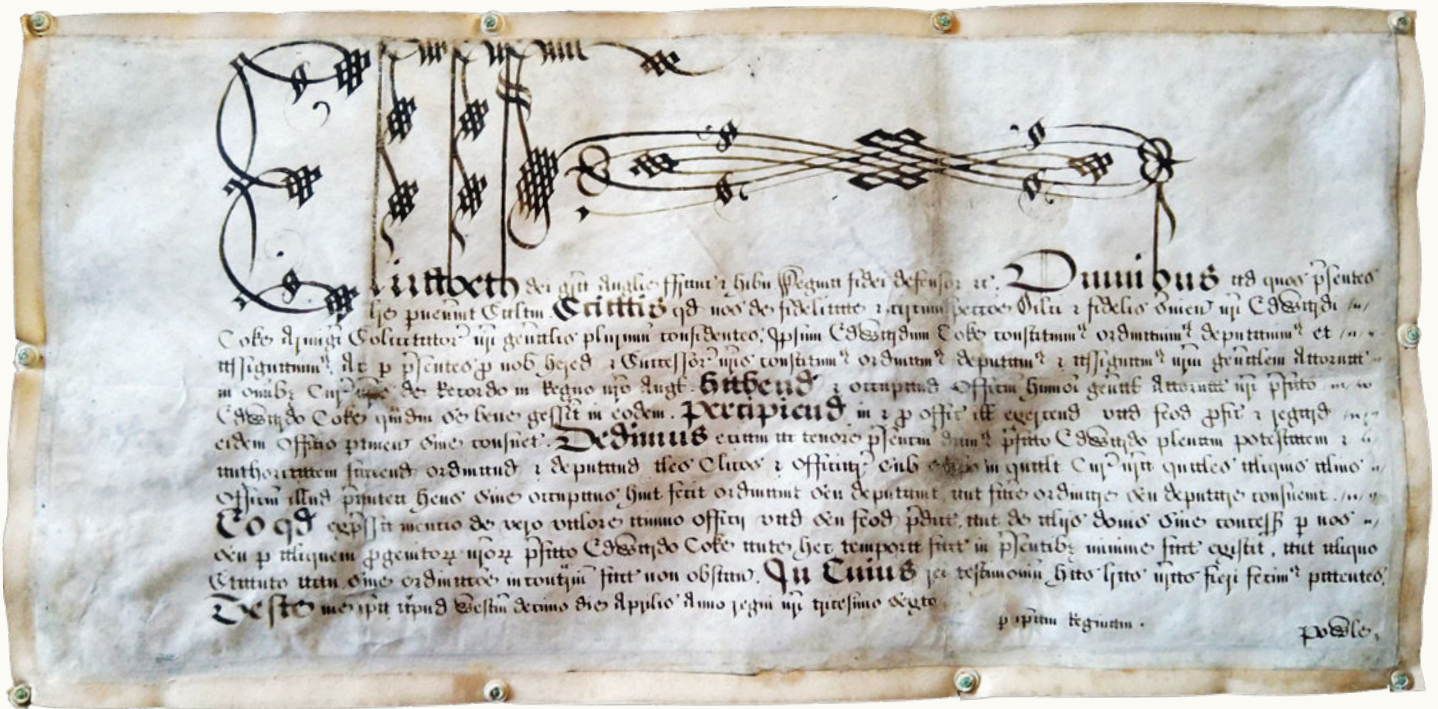 Elizabeth dei gra Anglie ffranc & Hibnie Regina fidei defensor &c. Omnibus ad quos psentes
lre pervenint Saltm Sciatis qd nos de fidelitate & circumspeccoe Dilci & fidelis Svien nri Edwardi
Coke Armigi Solicitator nri genalis plurimu confidentes, Ipsum Edwardum Coke constituim ordinavim deputavim et
assignavim Ac p psentes p nob hered & Successor nris constituim ordinam deputam & assignam nrm genalem Attornat
in omibz Cur de Recordo in Regno nro Angl. Habend & occupand Officiu genal Attornat nri pfato
Edwardo Coke qmdiu se bene gesserit in eodem. Percipiend in & p offic ill exercend vad feod pfic & regard
eidem Officio ptinen sive consuet. Dedimus eciam ac tenore psentiu dam pfato Edwardo plenam potestatem &
authoritatem faciend ordinand & deputand tales Clicos & Officiar sub se in qualt Cur nra quales aliquis alius
Officiu illud pantea hens sive occupans huit fecit ordinavit seu deputavit, aut face ordinare seu deputare consuevit.
Eo qd expssa mentio de vero valore annuo Officij vad seu feod pdict, aut de alijs donis sive concess p nos
seu p aliquem pgenitor nror pfato Edwardo Coke ante hec tempora fact in psentibz minime fact existit, aut aliquo
Statuto actu sive ordinacoe incontrariu fact non obstan. In Cuius rei testimoniu has lras nras fieri fecim patentes.
Teste me ipa apud Westm decimo die Aprilis Anno regni nri tricesimo sexto
p ipsam Reginam.
Powle.